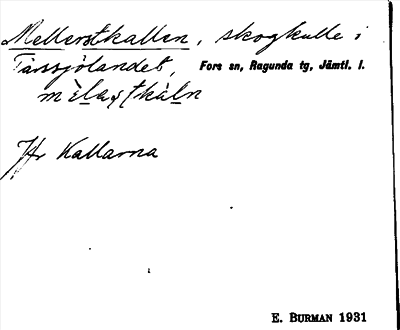 Mellerstkallen, skogkulle i
Tavsjölandet, Fors sn, Ragunda tg, Jämtl. l.
mèlaştkàln
Jfr Kallarna
E. BURMAN 1931